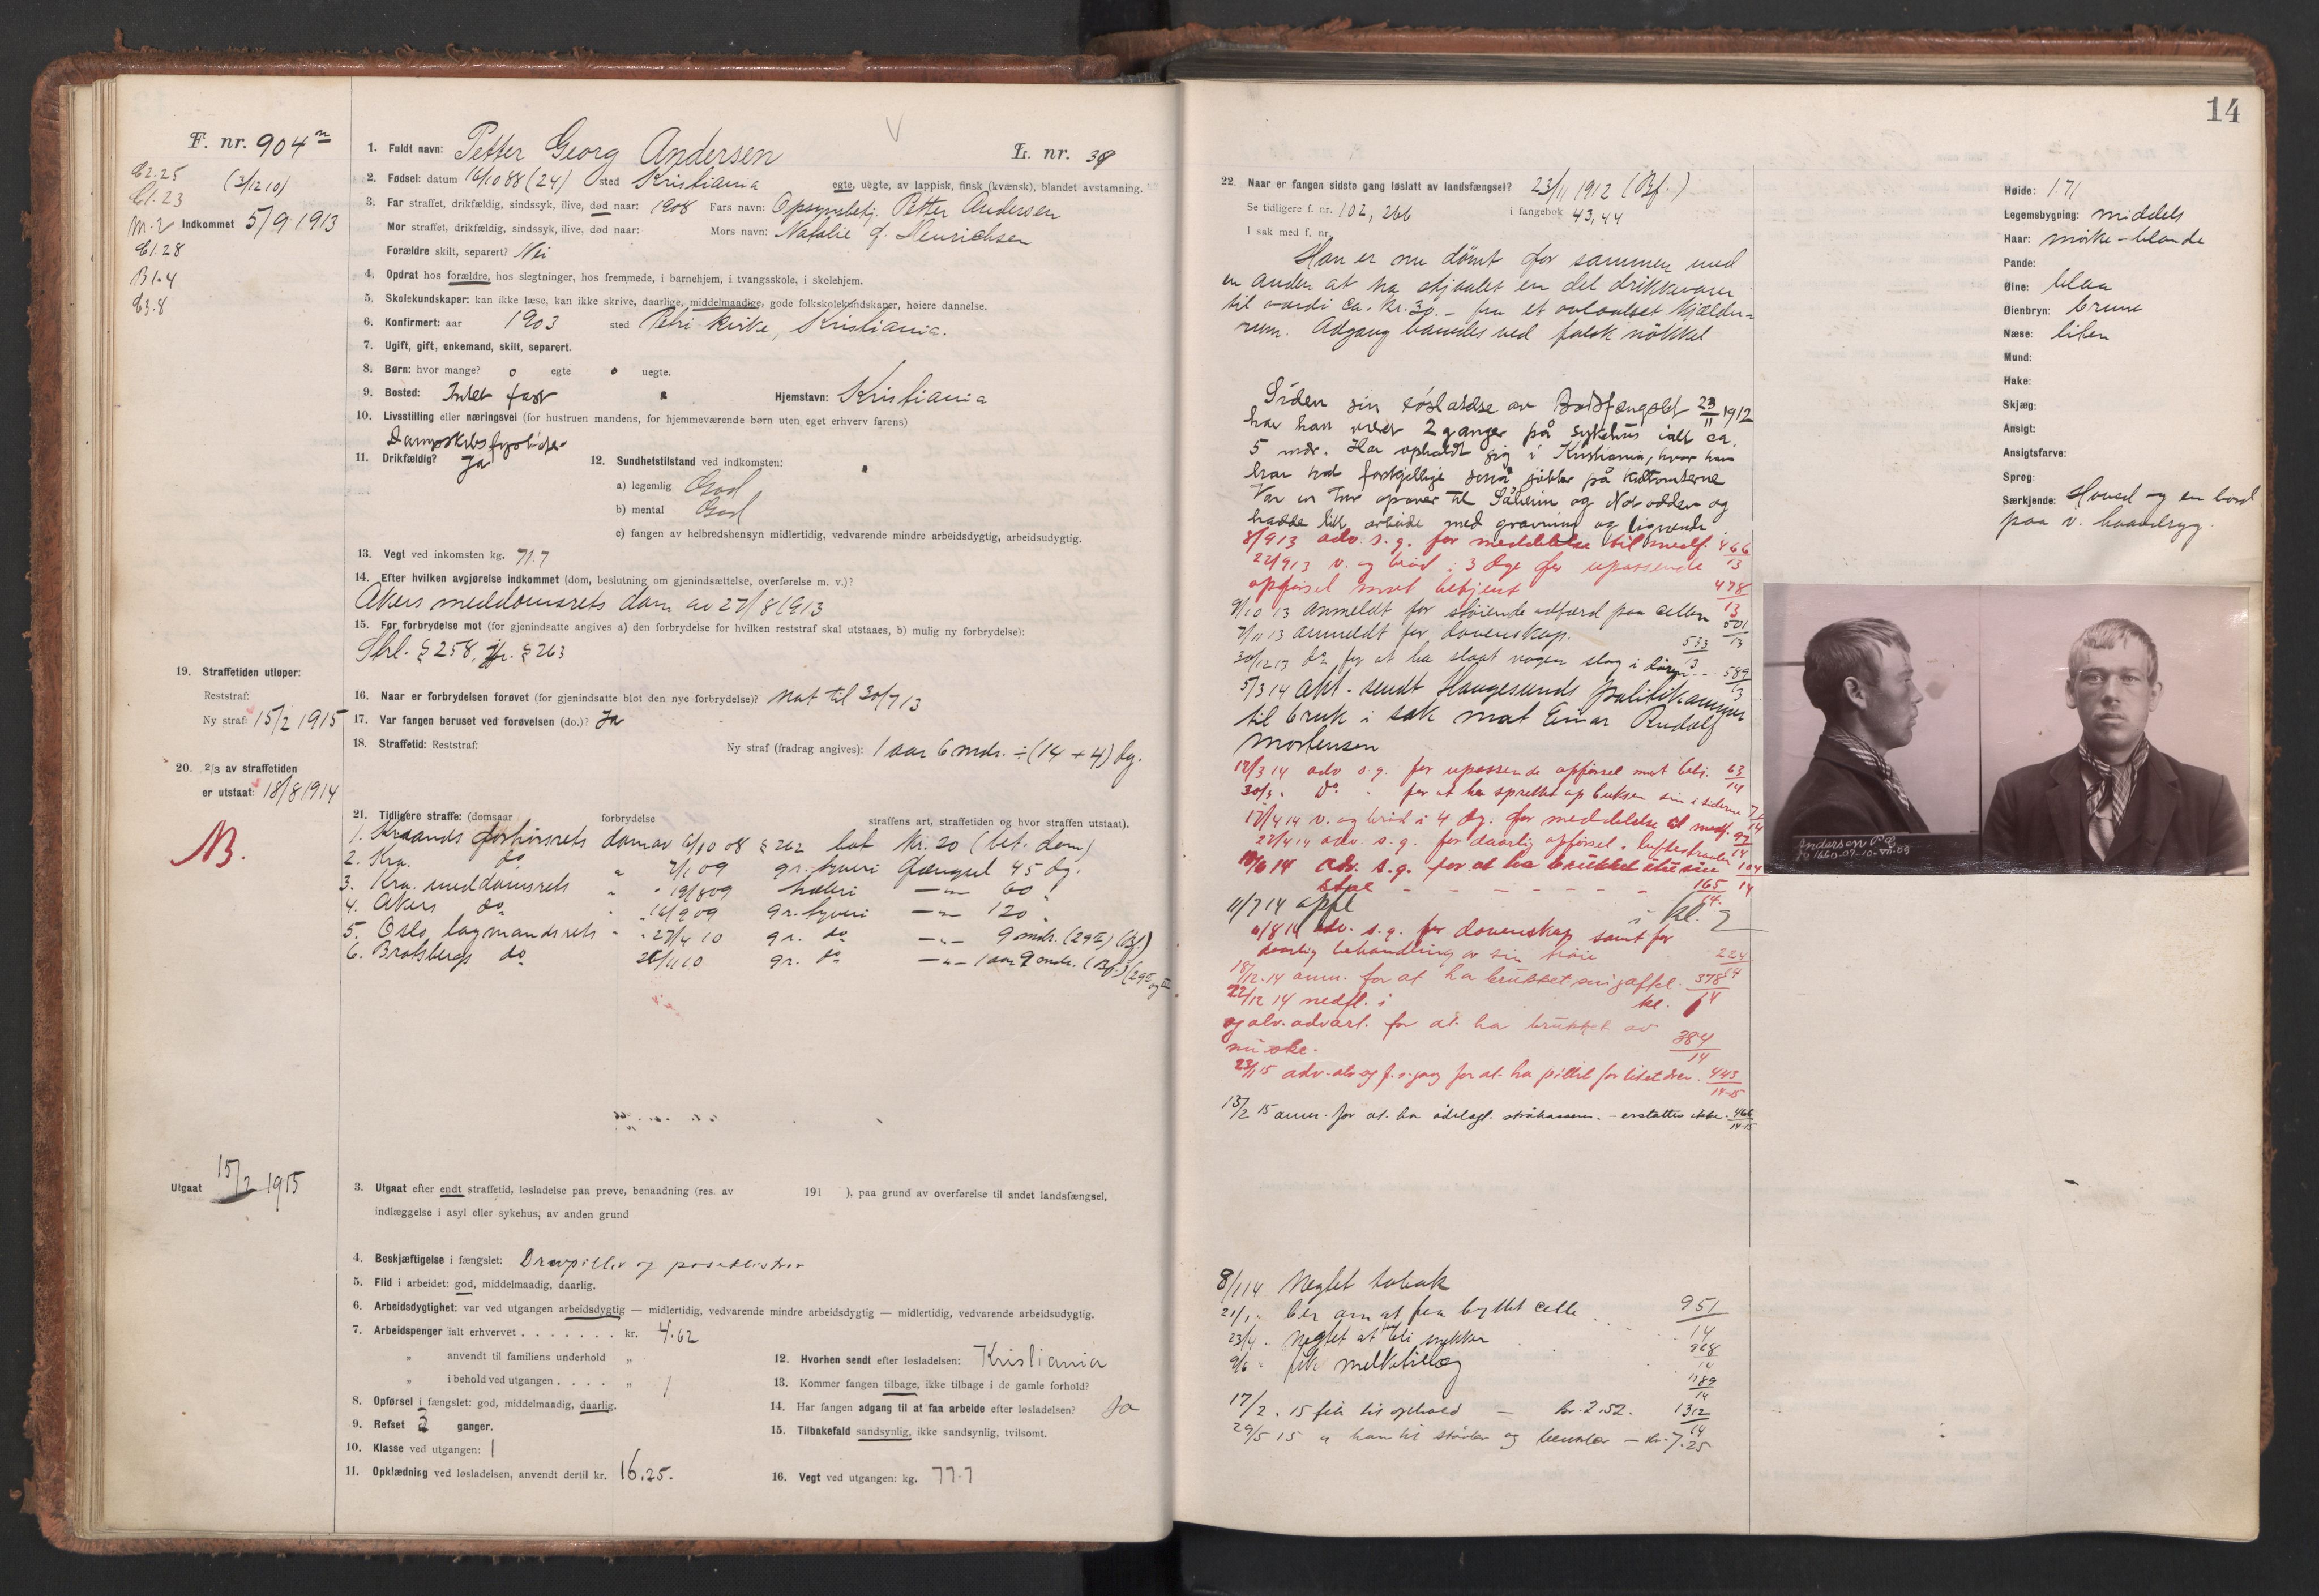 F. nr. 904
(3/12 10)
Indkommet 5/9 1913
1. Fuldt navn: Petter Georg Andersen
L. nr. 38
2. Fødsel: datum 16/10 88 (24) sted Kristiania
egte, uegte, av lappisk, finsk (kvænsk), blandet avstamning.
3. Far straffet, drikfældig, sindssyk, ilive, død naar: 1908 Fars navn: Opsynsbetj. Petter Andersen
Mor straffet, drikfældig, sindssyk, ilive, død naar: Mors navn: Natalie f. Henrichsen
Forældre skilt, separert? Nei
4. Opdrat hos forældre, hos slegtninger, hos fremmede, i barnehjem, i tvangsskole, i skolehjem.
5. Skolekundskaper: kan ikke læse, kan ikke skrive, daarlige, middelmaadige, gode folkskolekundskaper, høiere dannelse.
6. Konfirmert: aar 1903 sted Petri kirke, Kristiania.
7. Ugift, gift, enkemand, skilt, separert.
8. Børn: hvor mange? 0 egte uegte.
9. Bosted: Intet fast Hjemstavn: Kristiania
10. Livsstilling eller næringsvei (for hustruen mandens, for hjemmeværende børn uten eget erhverv farens)
11. Drikfældig? Ja
12. Sundhetstilstand ved indkomsten:
a) legemlig God
b) mental God
c) fangen av helbredshensyn midlertidig, vedvarende mindre arbeidsdygtig, arbeidsudygtig.
13. Vegt ved inkomsten kg. 71.7
14. Efter hvilken avgjørelse indkommet (dom, beslutning om gjenindsættelse, overførelse m. v.)?
Akers meddomsrets dom av 27/8 1913
15. For forbrydelse mot (for gjenindsatte angives a) den forbrydelse for hvilken reststraf skal utstaaes, b) mulig ny forbrydelse):
Strl. § 258, jfr. § 263
16. Naar er forbrydelsen forøvet (for gjenindsatte blot den nye forbrydelse)? Nat til 30/7 13
17. Var fangen beruset ved forøvelsen (do.)? Ja
18. Straffetid: Reststraf: Ny straf (fradrag angives): 1 aar 6 mdr. ÷ (14 + 4) dg.
19. Straffetiden utløper:
Reststraf:
Ny straf: 15/2 1915
20. 2/3 av straffetiden
er utstaat: 18/8 1914
21. Tidligere straffe: (domsaar forbrydelse straffens art, straffetiden og hvor straffen utstaat).
1. Kraands forhørsrets dom av 6/10 08 § 262 bot kr. 20 (bet. dom)
2. Kra. do 7/1 09 gr. tyveri fængsel 45 dg.
3. Kra. meddomsrets 19/8 09 hæleri 60
4. Akers do 16/9 09 gr. tyveri 120
5. Oslo lagmandsrets 27/4 10 gr. do 9 mdr. (Bf.)
6. Bratsbergs do gr. do 1 aar 9 mdr. (Bf.)
Utgaat 15/2 1915
3. Utgaat efter endt straffetid, løsladelse paa prøve, benaadning (res. av 191 ), paa grund av overførelse til andet landsfængsel,
indlæggelse i asyl eller sykehus, av anden grund
4. Beskjæftigelse i fængslet: Drevpiller og
5. Flid i arbeidet: god, middelmaadig, daarlig.
6. Arbeidsdygtighet: var ved utgangen arbeidsdygtig — midlertidig, vedvarende mindre arbeidsdygtig — midlertidig, vedvarende arbeidsudygtig.
7. Arbeidspenger ialt erhvervet . . . . . . . kr. 4.62
„ anvendt til familiens underhold „
„ i behold ved utgangen . . . . „
8. Opførsel i fængslet: god, middelmaadig, daarlig.
9. Refset 2 ganger.
10. Klasse ved utgangen: 1
11. Opklædning ved løsladelsen, anvendt dertil kr. 16.25.
12. Hvorhen sendt efter løsladelsen: Kristiania
13. Kommer fangen tilbage, ikke tilbage i de gamle forhold?
14. Har fangen adgang til at faa arbeide efter løsladelsen? Ja
15. Tilbakefald sandsynlig, ikke sandsynlig, tvilsomt.
16. Vegt ved utgangen: kg. 77.7
14
22. Naar er fangen sidste gang løslatt av landsfængsel? 23/11 1912 (Bf.)
Se tidligere f. nr. 102, 266 i fangebok 43, 44
I sak med f. nr.
Han er nu dømt for sammen med
en anden at ha stjaalet en del drikkevarer
til værdi ca. kr. 30.- fra et avlaalset kjælder-
rum. Adgang banedes ved falsk nøkkel
Siden sin løslatelse av Botsfængslet 23/11 1912
har han været 2 ganger på sykehus ialt ca.
5 mdr. Har opholdt sig i Kristiania, hvor han
har hat forskjellige små jobber på
Var en tur opover til Såheim og Notodden og
hadde litt arbeide med gravning og lignende.
8/9 13 adv. s. g. for meddelelse til medf. 466/13
22/9 13 v. og brød i 3 dge for upassende
opførsel mot betjent 478/13
9/10 13 anmeldt for støiende adfærd paa cellen 501/13
7/11 13 anmeldt for dovenskap. 533/13
30/12 13 do for at ha slaat nogen slag i døren 589/13
5/3 14 akt. sendt Haugesunds politikammer
til bruk i sak mot Einar Rudolf
Mortensen
12/3 14 adv s.g. for upassende opførsel mot betj. 63/14
30/3 do for at ha sprettet op buksen sin i siderne
17/4 14 v. og brød i 4 dg. for meddelelse til medf.
22/4 14 adv. s. g. for daarlig opførsel i
adv. s.g. for at ha brukket
165/14
11/7 14 opfl. i kl. 2
adv. s. g. for dovenskap samt for
daarlig behandling av sin trøie 224/14
18/12 14 anm. for at ha brukket sin gaffel. 378/14
22/12 14 nedfl. i kl. 1
og alv. advart. for at ha brukket av
sin ske. 384/14
443/14-15
13/2 15 anm. for at ha ødelagt - erstattes ikke. 466/14-15
8/1 14 Neglet tobak
21/1 ber om at faa byttet celle 951/14
23/4 neglet at bli 968/14
9/6 fik melketillæg 1189/14
17/2 . 15 fik til ophold — kr. 2.52. 1312/14
29/5 15 — kr. 7.25
Høide: 1.71
Legemsbygning: middels
Haar: mørke-blonde
Pande:
Øine: blaa
Øienbryn: brune
Næse: liten
Mund:
Hake:
Skjæg:
Ansigt:
Ansigtsfarve:
Sprog:
Særkjende:
paa v. haandryg.